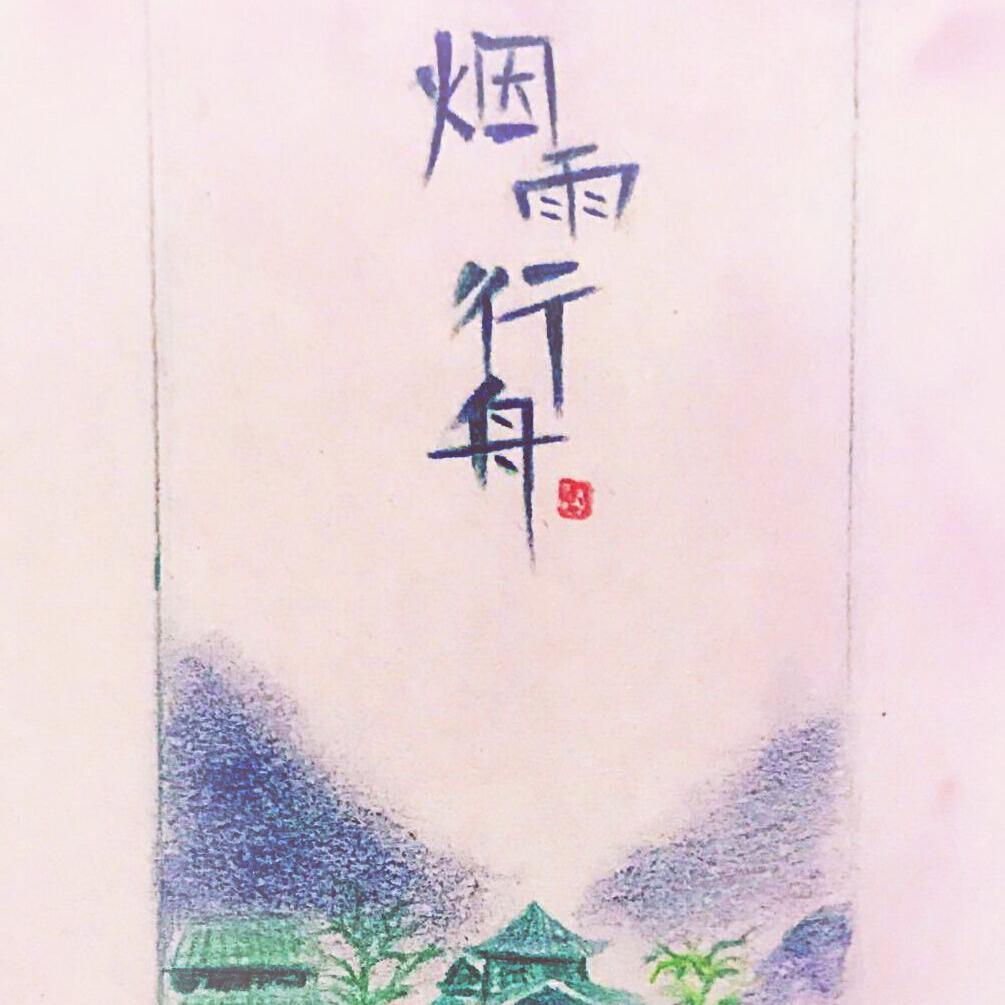 烟雨行舟